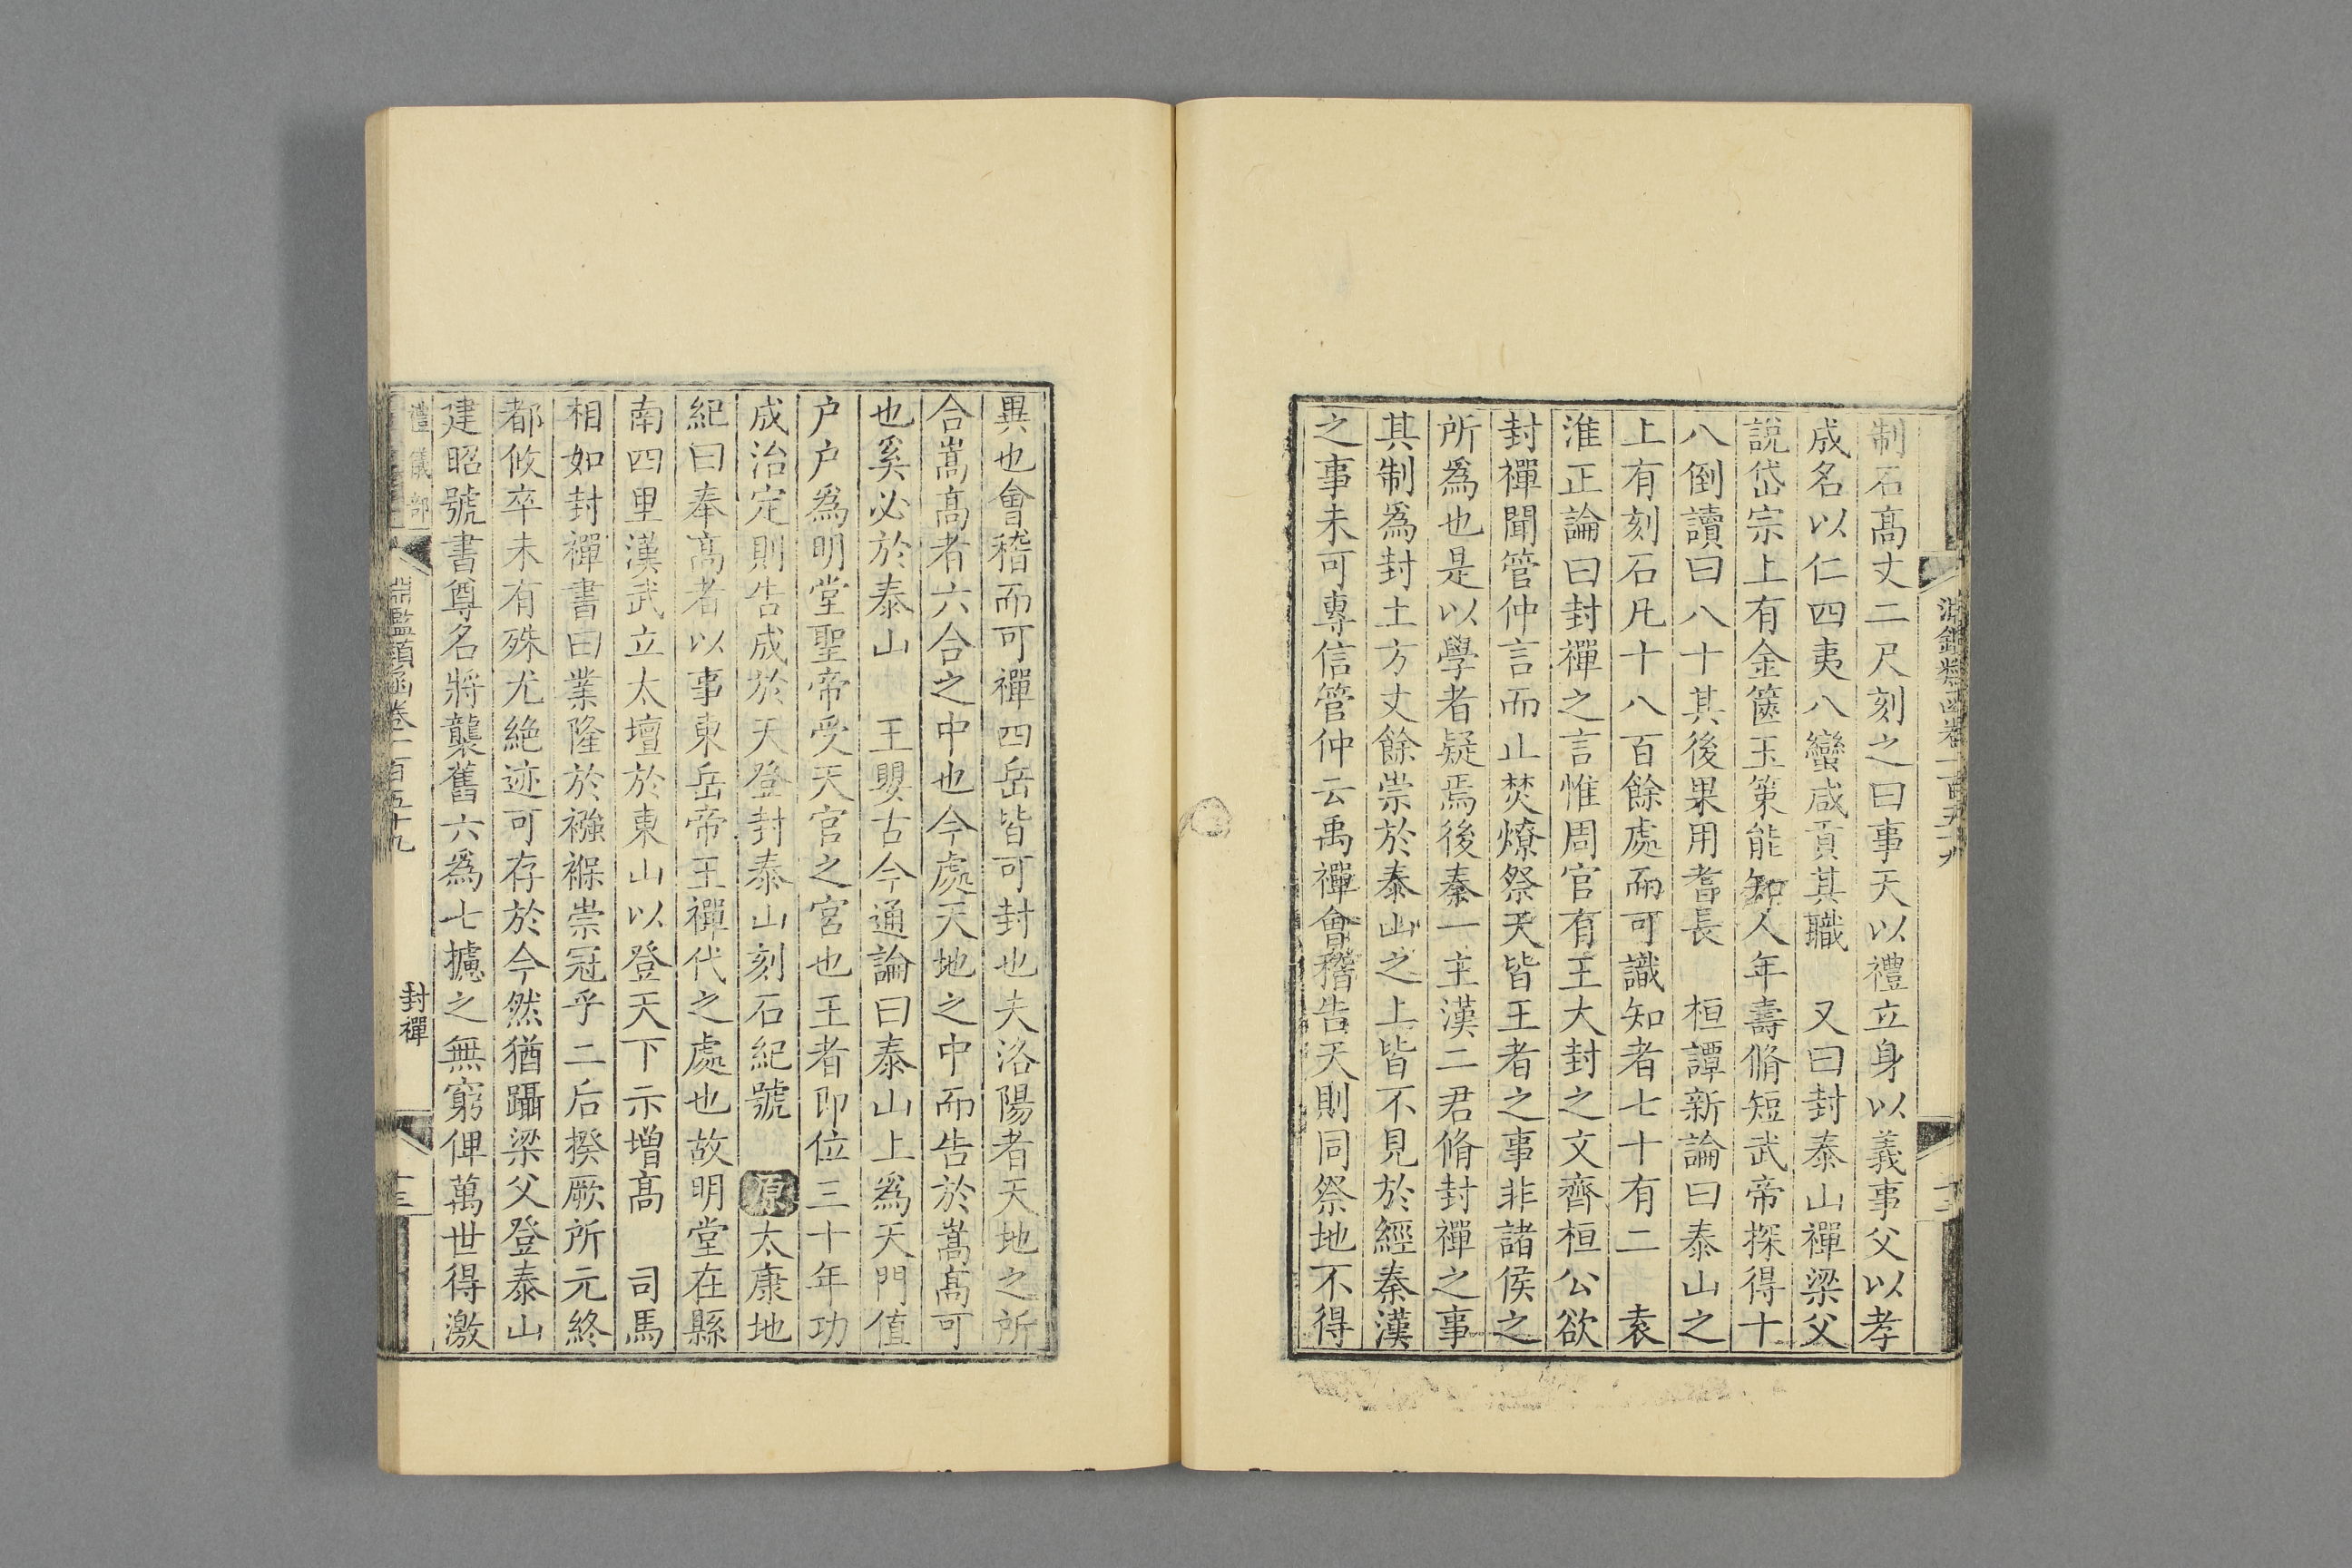 淵鑑類函卷一百五十九
制石高丈二尺刻之曰事天以禮立身以義事父以孝
成名以仁四夷八蠻咸貢其職　又曰封泰山禪梁父
說岱宗上有金篋玉策能知人年壽脩短武帝探得十
八倒讀曰八十其後果用耆長　桓譚新論曰泰山之
上有刻石凡十八百餘處而可識知者七十有二　袁
淮正論曰封禪之言惟周官有王大封之文齊桓公欲
封禪聞管仲言而止焚燎祭天皆王者之事非諸侯之
所爲也是以學者疑焉後秦一主漢二君脩封禪之事
其制爲封土方丈餘崇於泰山之上皆不見於經秦漢
之事未可專信管仲云禹禪會稽告天則同祭地不得
異也會稽而可禪四岳皆可封也夫洛陽者天地之所
合嵩高者六合之中也今處天地之中而告於嵩高可
也奚必於泰山　王嬰古今通論曰泰山上爲天門值
户户爲明堂聖帝受天官之宮也王者即位三十年功
成治定則告成於天登封泰山刻石紀號　原太康地
紀曰奉高者以事東岳帝王禪代之處也故明堂在縣
南四里漢武立太壇於東山以登天下示增高　司馬
相如封禪書曰業隆於襁褓崇冠乎二后揆厥所元終
都攸卒未有殊尤絶迹可存於今然猶躡梁父登泰山
建昭號書尊名將襲舊六爲七攄之無窮俾萬世得激
禮儀部　淵鑑類函卷一百五十九　封禪　十三